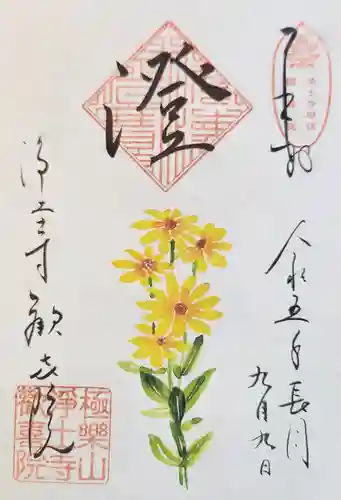 奉拝
令和五年長月
九月九日
澄
浄土寺歓喜院
極樂山
浄土寺
歡喜院